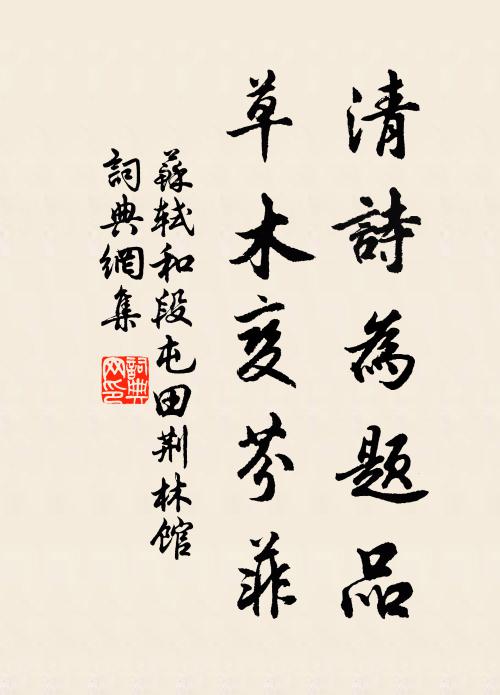 清詩為題品
草木变芬菲
蘇轼和段屯田荆林馆
詞典網集
詞典网印